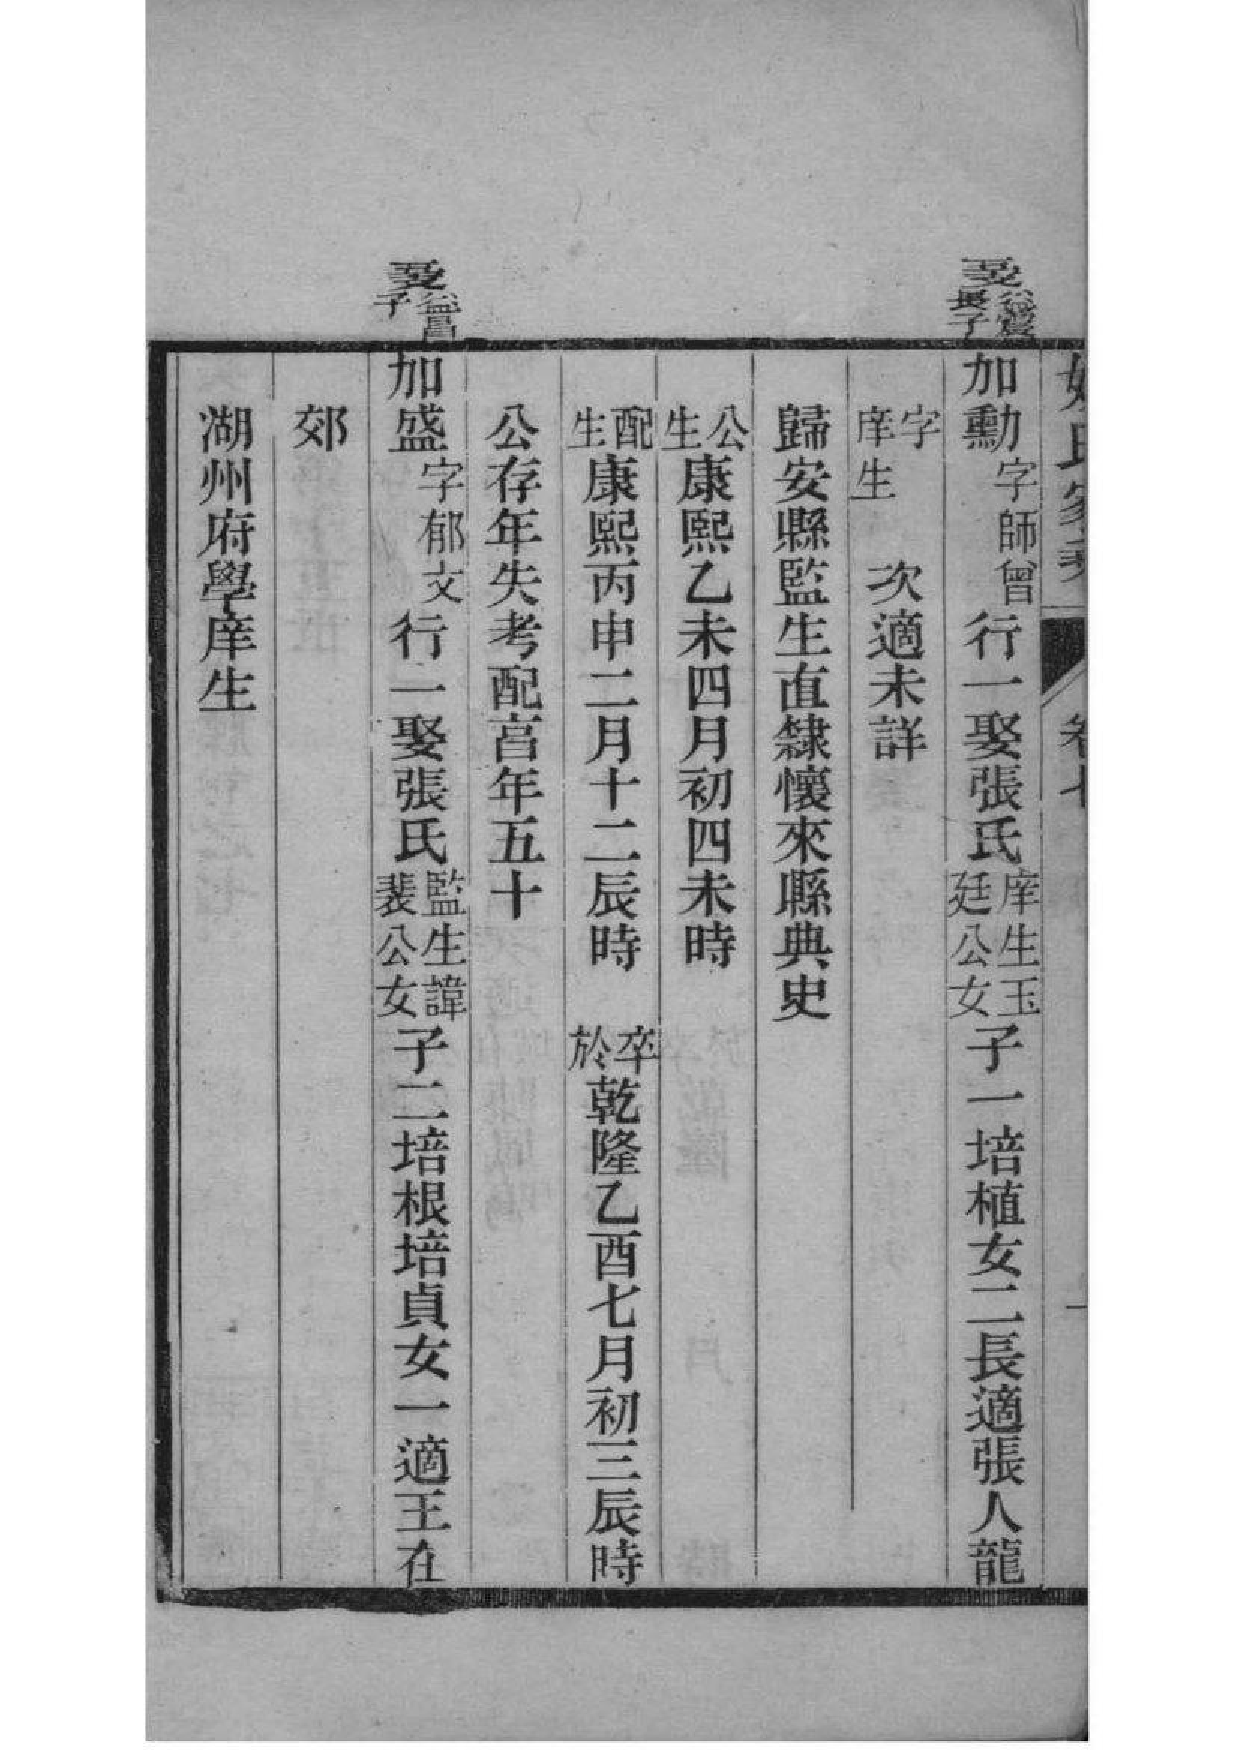 姚氏家乘 卷七 一
爻
長子
加勳字師曾行一娶張氏庠生玉廷公女子一培植女二長適張人龍
字庠生 次適未詳
歸安縣監生直隸懷來縣典史
公生康熙乙未四月初四未時
配生康熙丙申二月十二辰時 卒於乾隆乙酉七月初三辰時
公存年失考配享年五十
益昌子
加盛字郁文行一娶張氏監生諱裴公女子二培根培貞女一適王在
郊
湖州府學庠生